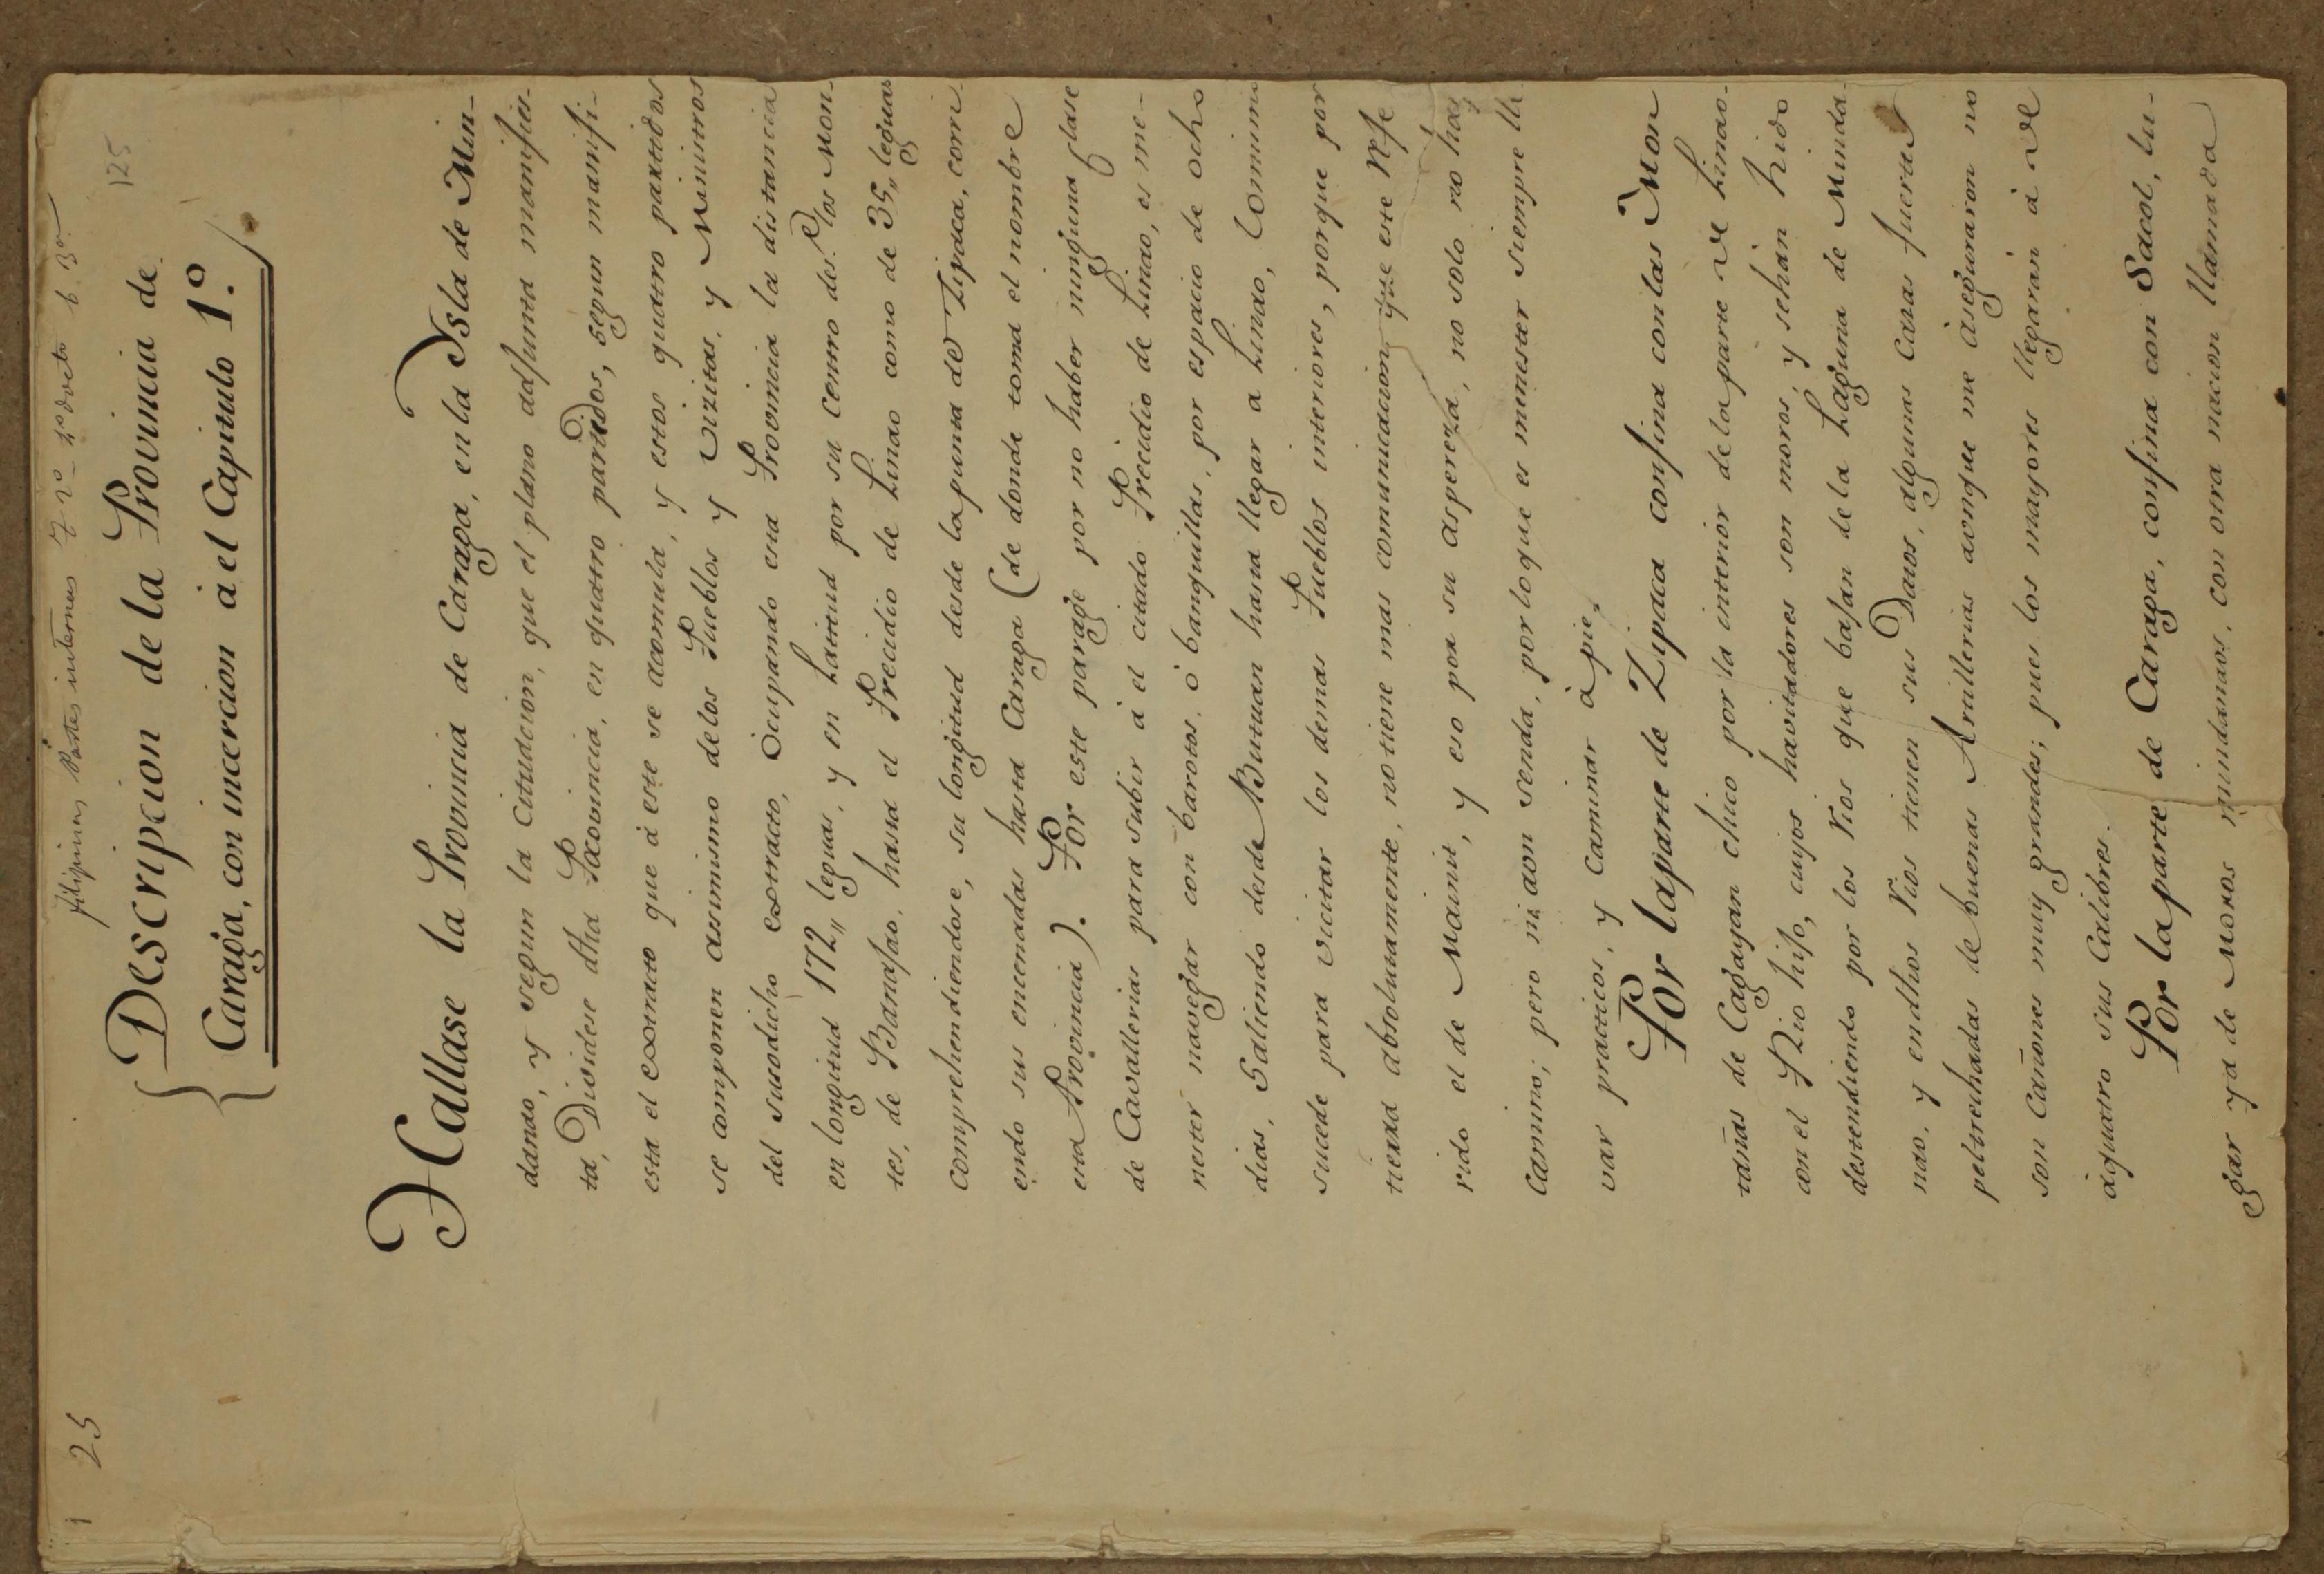 1 25
filipinas Partes internas
125
Descripcion de la Provincia de
Caraga, con incercion à el Capitulo 1.º
Hallase la Provincia de Caraga, en la Ysla de Min-
danao, y segun la cituacion, que el plano adjunta manifies-
ta, Dividese dha Provincia, en quatro partidos, segun manifi-
esta el extracto que à este se acomula, y estos quatro partidos
se componen assimismo delos Pueblos y Vizitas, y Ministros
del susodicho extracto, Ocupando esta Provincia la distancia
en longitud 172,, leguas, y en Latitud por su centro des.e los Mon-
tes, de Banajao, hasta el Precidio de Linao como de 35,, leguas
comprehendiendose, su longitud desde la punta de Zipaca, corri
endo sus encenadas hasta Caraga (de donde toma el nombre
esta Provincia). Por este parage por no haber ninguna clase
de Cavallerias para subir à el citado Precidio de Linao, es me-
nester navegar con barotos, ò banquillas, por espacio de ocho
dias, Saliendo desde Butuan hasta llegar a Linao, Lo mismo
sucede para vicitar los demas Pueblos interiores, porque por
tierra absolutamente, no tiene mas comunicacion que este
rido el de Mainit, y eso por su aspereza, no solo no hay
camino; pero ni aon senda, por lo que es menester siempre lle
var practicos, y caminar à pie.
Por la parte de Zipaca confina con las Mon
tañas de Cagayan chico por la interior de la parte de Linao-
con el Rio hijo, cuyos havitadores son moros, y se hán hido
destendiendo por los rios que bajan de la Laguna de Minda-
nao, y en dhos rios tienen sus Datos, algunas Casas fuertes
peltrechadas de buenas Artillerias aonque me àseguraron no
son Cañones muy grandes; pues los mayores llegarán à de
àquatro sus Calibres.
Por la parte de Caraga, confina con Sacol, lu-
gar ya de Moros mindanaos, con otra nacion llamada